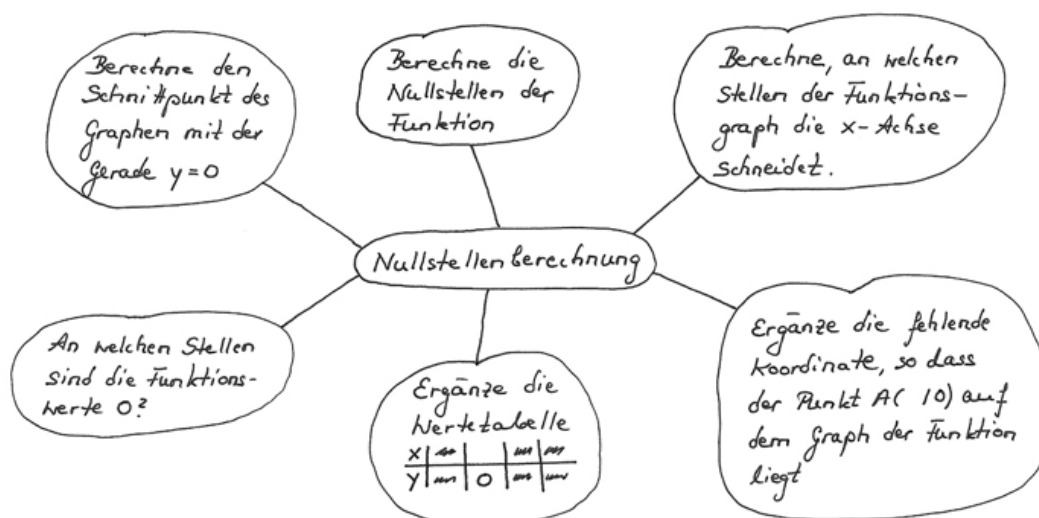 Berechne den
Schnittpunkt des
Graphen mit der
Gerade y=0
Berechne die
Nullstellen der
Funktion
Berechne, an welchen
Stellen der Funktions-
graph die x-Achse
schneidet.
Nullstellenberechnung
An welchen Stellen
sind die Funktions-
werte 0?
Ergänze die
Wertetabelle
X
Y 0
Ergänze die fehlende
Koordinate, so dass
der Punkt A( |0) auf
dem Graph der Funktion
liegt